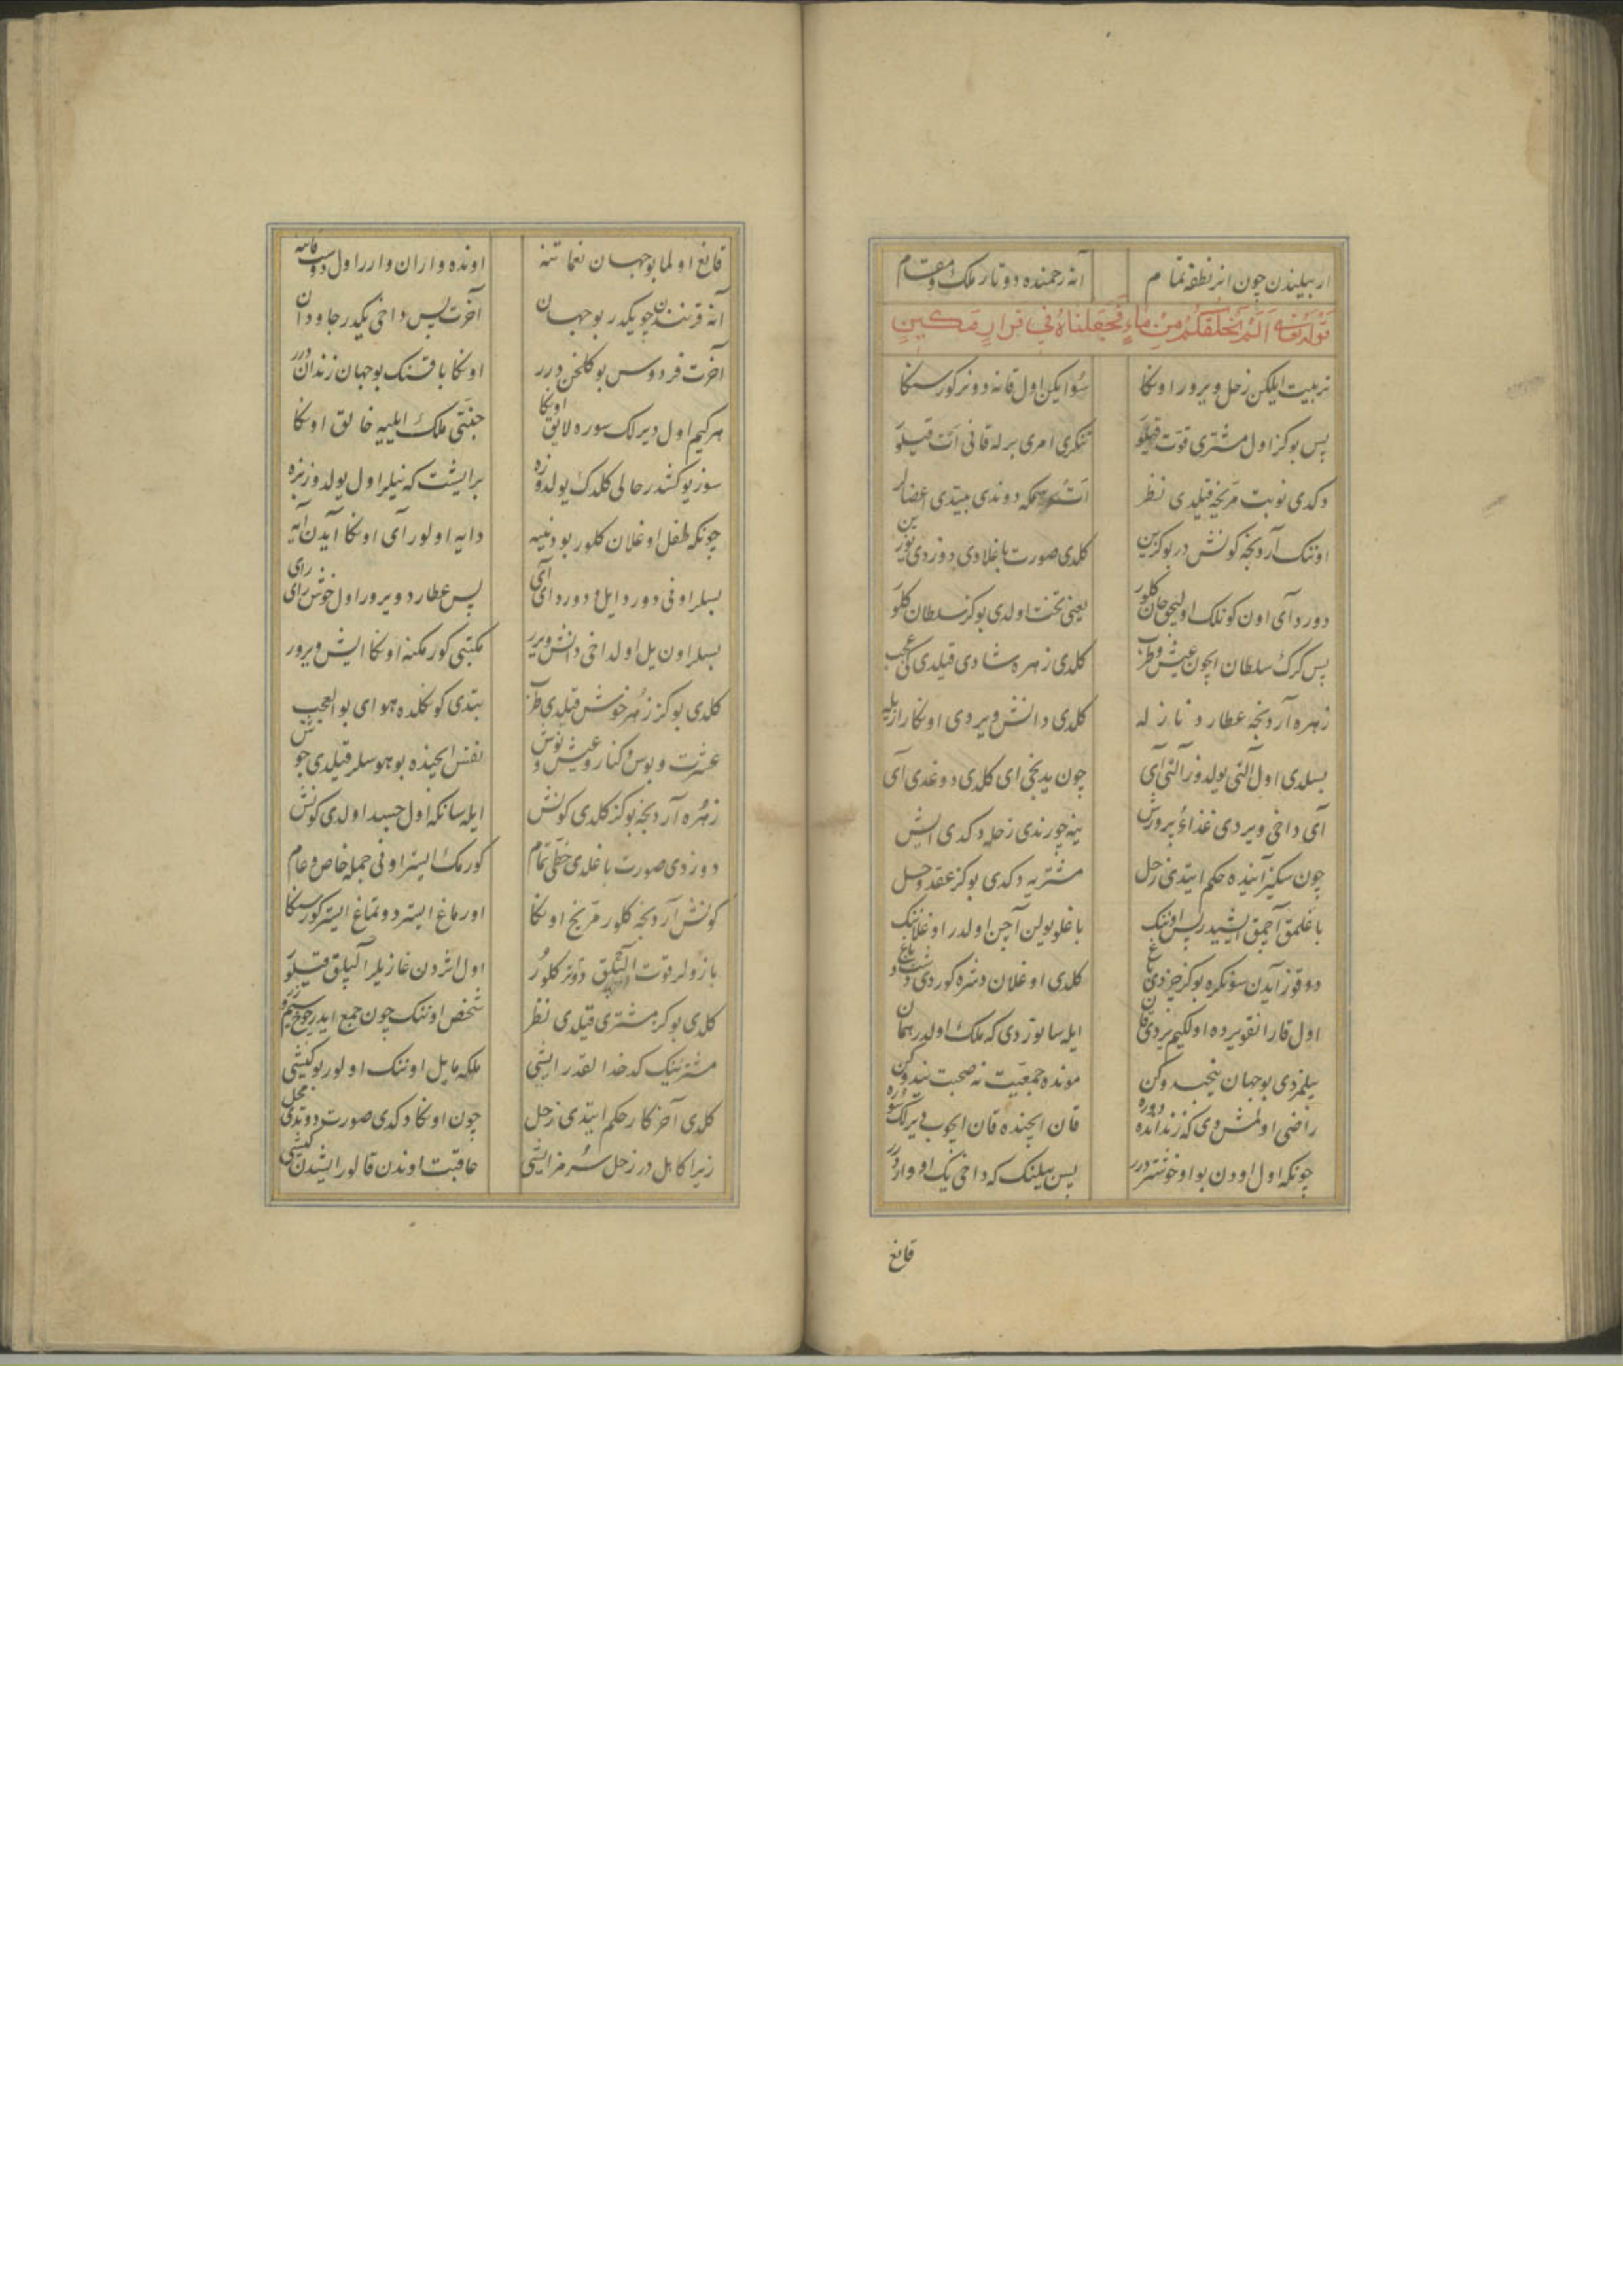 ار بیلیندن چون انر نطفه تمام آنه رحمنده دوتار ملك و مقام
قوله تعالی اَلَمْ نَخْلُقْكُمْ مِنْ مَاءٍ فَجَعَلْنَاهُ فِي قَرَارٍ مَكِينٍ
تربیت ایلیکن زحل ویرور اوںکا سُو ایکن اول قانه دونر کورسنکا
پس بوکز اول مشتری قوّت قیلوَر تنکری امری برله قانی اَت قیلوَر
دکدی نوبت مرّیخه قیلدی نظر اَت سُوکه دوندی بیتدی اعضالر
اوننک آردنجه کونش در بوکزین کلدی صورت باغلادی دوزدی نورین
دورد آی اون کونلک اولیجق جان کلور یعنی تخت اولدی بوکز سلطان کلوَر
پس کرك سلطان ایچون عیش و طرب کلدی زهره شادی قیلدی کی عجب
زهره آردنجه عطارد نازله کلدی دانش ویردی اونکا رازیله
بسلدی اول آلتی یولدوز آلتی آی چون یدینجی ای کلدی دوغدی آی
آی داخی ویردی غذاءُ پرورش ینه چورندی زحله دکدی ایش
چون سکیز آیده حکم ایتدی زحل مشتریه دکدی بوکز عقد و حل
باغلمق آچمق ایشیدر پس اوننک باغلو یولین آچن اولدر اوغلاننک
دوقوز آیدن سونکره بوکز خردی کلدی اوغلان دشره کوردی
اول قارانقو یرده اولکیم یردی قان ایله سانوردی که ملك اولدر همان
بیلمزدی بو جهان نیجه دوکن مونده جمعیّت نه صحبت نه دوکن
راضی اولمش دی که زنداندہ دوره قان ایچنده قان ایچوب دیرلک سوره
چونکه اول اودن بو او خوشتر درر پس بیلنک که داخی یک او واردرر
قانغ
قانع اولما بو جهان نعماتنه اونده واران وارر اول دوست قاتنه
آنه قرنندن چو یکدر بو جهان آخرت پس داخی یکدر جاودان
آخرت فردوس بو کلخن درر اونکا باقسنک بو جهان زندان درر
هر کیم اول دیرلک سوره لایق اونکا جنّتی ملك ایلیه خالق اونکا
سوز یوکشدر حالی کلدك یولدوزه بر ایشت که نیلر اول یولدوز بزه
چونکه طفل اوغلان کلور بو دنییه دایه اولور آی اونکا آیدن آیه
بسلر اونی دورد ایل و دورد آی آی پس عطارد ویرور اول خوش رای رای
بسلر اون یل اولداخی دانش ویرر مکتبی کورمکنه اونکا ایش ویرور
کلدی بوکز زُهره خوش قیلدی طرب بتدی کونکلده هوای بوالعجب
عشرت و بوس و کنار و عیش و نوش نفس ایچنده بو هوسلر قیلدی جوش
زهُره آردنجه بوکز کلدی کونش ایله سانکه اول جسد اولدی کونش
دوزدی صورت باغلدی خطّی تمام کورمك ایستر اونی جمله خاص و عام
کونش آردنجه کلور مرّیخ اونکا اورماغ ایستر دوتماغ ایستر کورسنکا
بازولر قوّت آلپلق دوتر کلوُر اول اثردن غازیلر آلپلق قیلوَر
کلدی بوکز مشتری قیلدی نظر شخص اوننک چون جمع ایدر سیم و زر
مشترینک کدخدالقدر ایشی ملکه مایل اوننک اولور بو کیشی
کلدی آخر کار حکم ایتدی زحل چون اونکا دکدی صورت دوتدی محل
زیرا کاهل در زحل سُرمز ایشی عاقبت اوندن قالور ایشدن کیشی